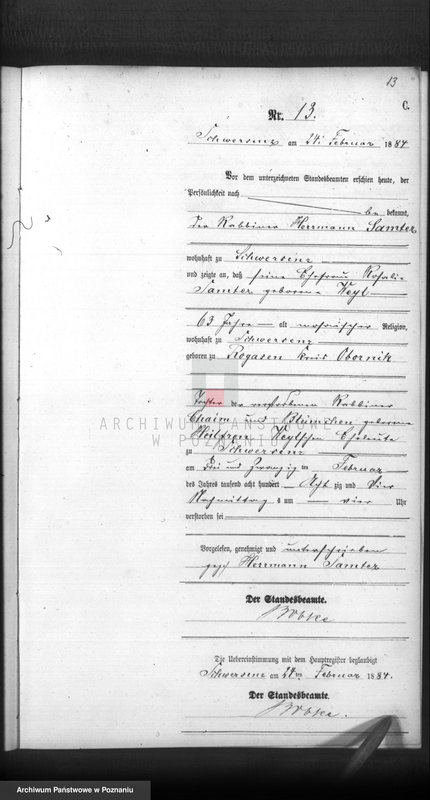 13
C.
Nr. 13.
Schwersenz am 24. Februar 1884
Vor dem unterzeichneten Standesbeamten erschien heute, der
Persönlichkeit nach
be kannt,
der Rabbiner Herrmann Samter
wohnhaft zu Schwersenz
und zeigte an, daß seine Ehefrau Rosalie
Samter geborene Weyl
63 Jahre alt mosaischer Religion,
wohnhaft zu Schwersenz
geboren zu Rogasen Kreis Obornik
Tochter der verstorbenen Rabbiner
Chaim und Blümchen geborene
Heilbron Weylschen Eheleute
zu Schwersenz
am Drei und Zwanzig ten Februar
des Jahres tausend acht hundert Acht zig und Vier
Nachmittag s um vier Uhr
verstorben sei
Vorgelesen, genehmigt und unterschrieben
gez. Herrmann Samter
Der Standesbeamte.
Die Uebereinstimmung mit dem Hauptregister beglaubigt
Schwersenz am 24ten Februar 1884.
Der Standesbeamte.
ARCHIWUM PAŃSTWOWE
W POZNANIU
Archiwum Państwowe w Poznaniu